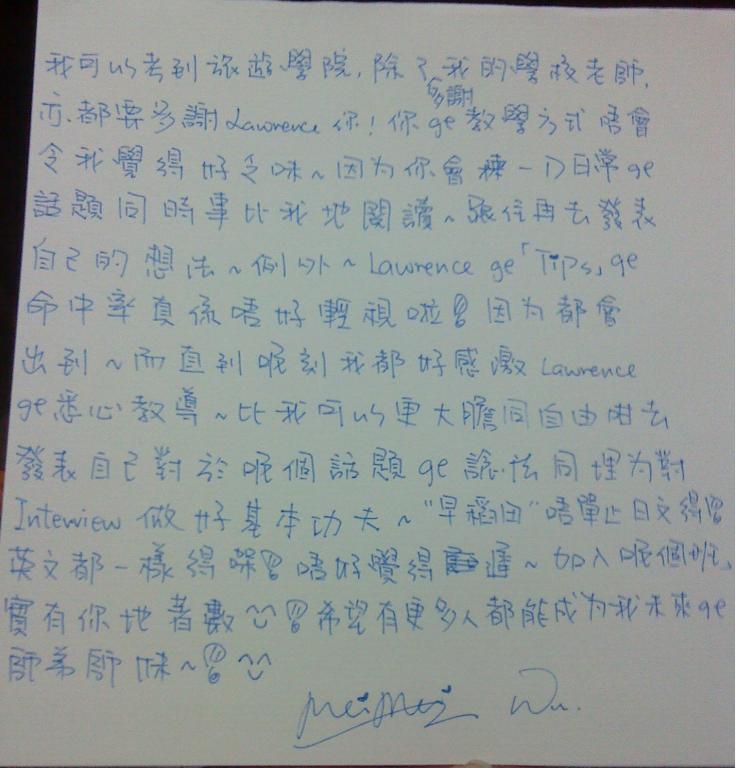 我可以考到旅遊學院,除了多謝我的學校老師,
亦都要多謝Lawrence 你!你ge教學方式唔會
令我覺得好乏味~因为你會揀一D日常ge
話題同時事比我地閱讀~跟住再去發表
自己的想法~例外~Lawrence ge「Tips」ge
命中率真係唔好輕視啦!!因为都會
出到~而直到呢刻我都好感激 Lawrence
ge悉心教導~比我可以更大膽同自由咁去
發表自己對於呢個話題ge諗法同埋为對
Interview 做好基本功夫~"早稻田"唔單止日文得!!
英文都一樣得㗎!!唔好覺得遲~加入呢個班,
實有你地著數!!希望有更多人都能成为我未來ge
師弟師妹~!!
MeiMei Wu.